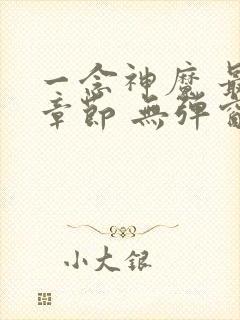 一念神魔 最
章節 無彈窗
小大銀